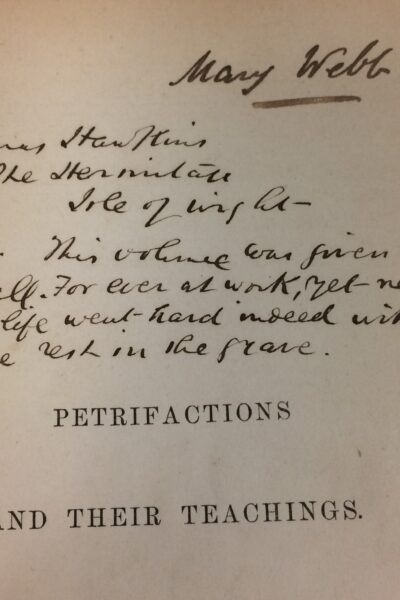 Mary Webb
Hawkins
The Hermitage
Isle of wight
This volume was given
For ever at work, yet
life went hard indeed
rest in the grave.
PETRIFACTIONS
AND THEIR TEACHINGS.